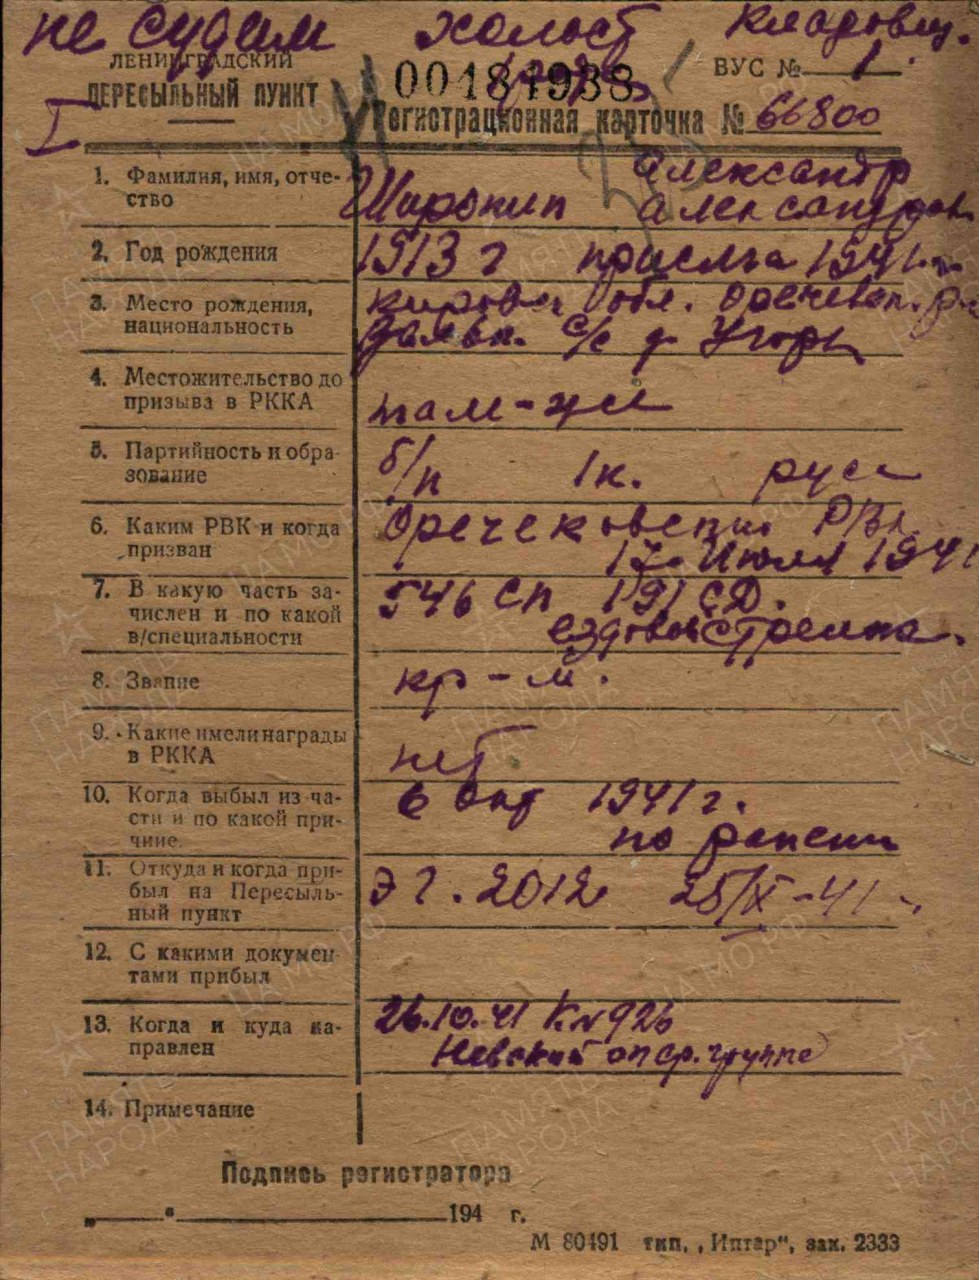 не судим холост кладовщ.
ЛЕНИНГРАДСКИЙ
ПЕРЕСЫЛЬНЫЙ ПУНКТ
00184938
ВУС № 1.
I
Регистрационная карточка № 66800
1. Фамилия, имя, отче-
ство
Широнин Александр
Александров
2. Год рождения
1913 г присяга 1941 г.
3. Место рождения,
национальность
Кировск обл.
с/с д Угоры
4. Местожительство до
призыва в РККА
там-же
5. Партийность и обра-
зование
б/п 1 к. русс
6. Каким РВК и когда
призван
Оречековским РВК
17 Июля 1941
7. В какую часть за-
числен и по какой
в/специальности
546 СП 191 СД.
ездовой стрелка.
8. Звание
кр-м.
9. Какие имели награды
в РККА
нет
10. Когда выбыл из ча-
сти и по какой при-
чине
6 окт 1941 г.
по ранени
11. Откуда и когда при-
был на Пересыль-
ный пункт
ЭГ. 2012 25/X-41
12. С какими докумен-
тами прибыл
13. Когда и куда на-
правлен
26.10.41 К.№926
Невской опер. группе
14. Примечание
Подпись регистратора
„ “ 194 г.
М 80491 тип. „Интар“, зак. 2333